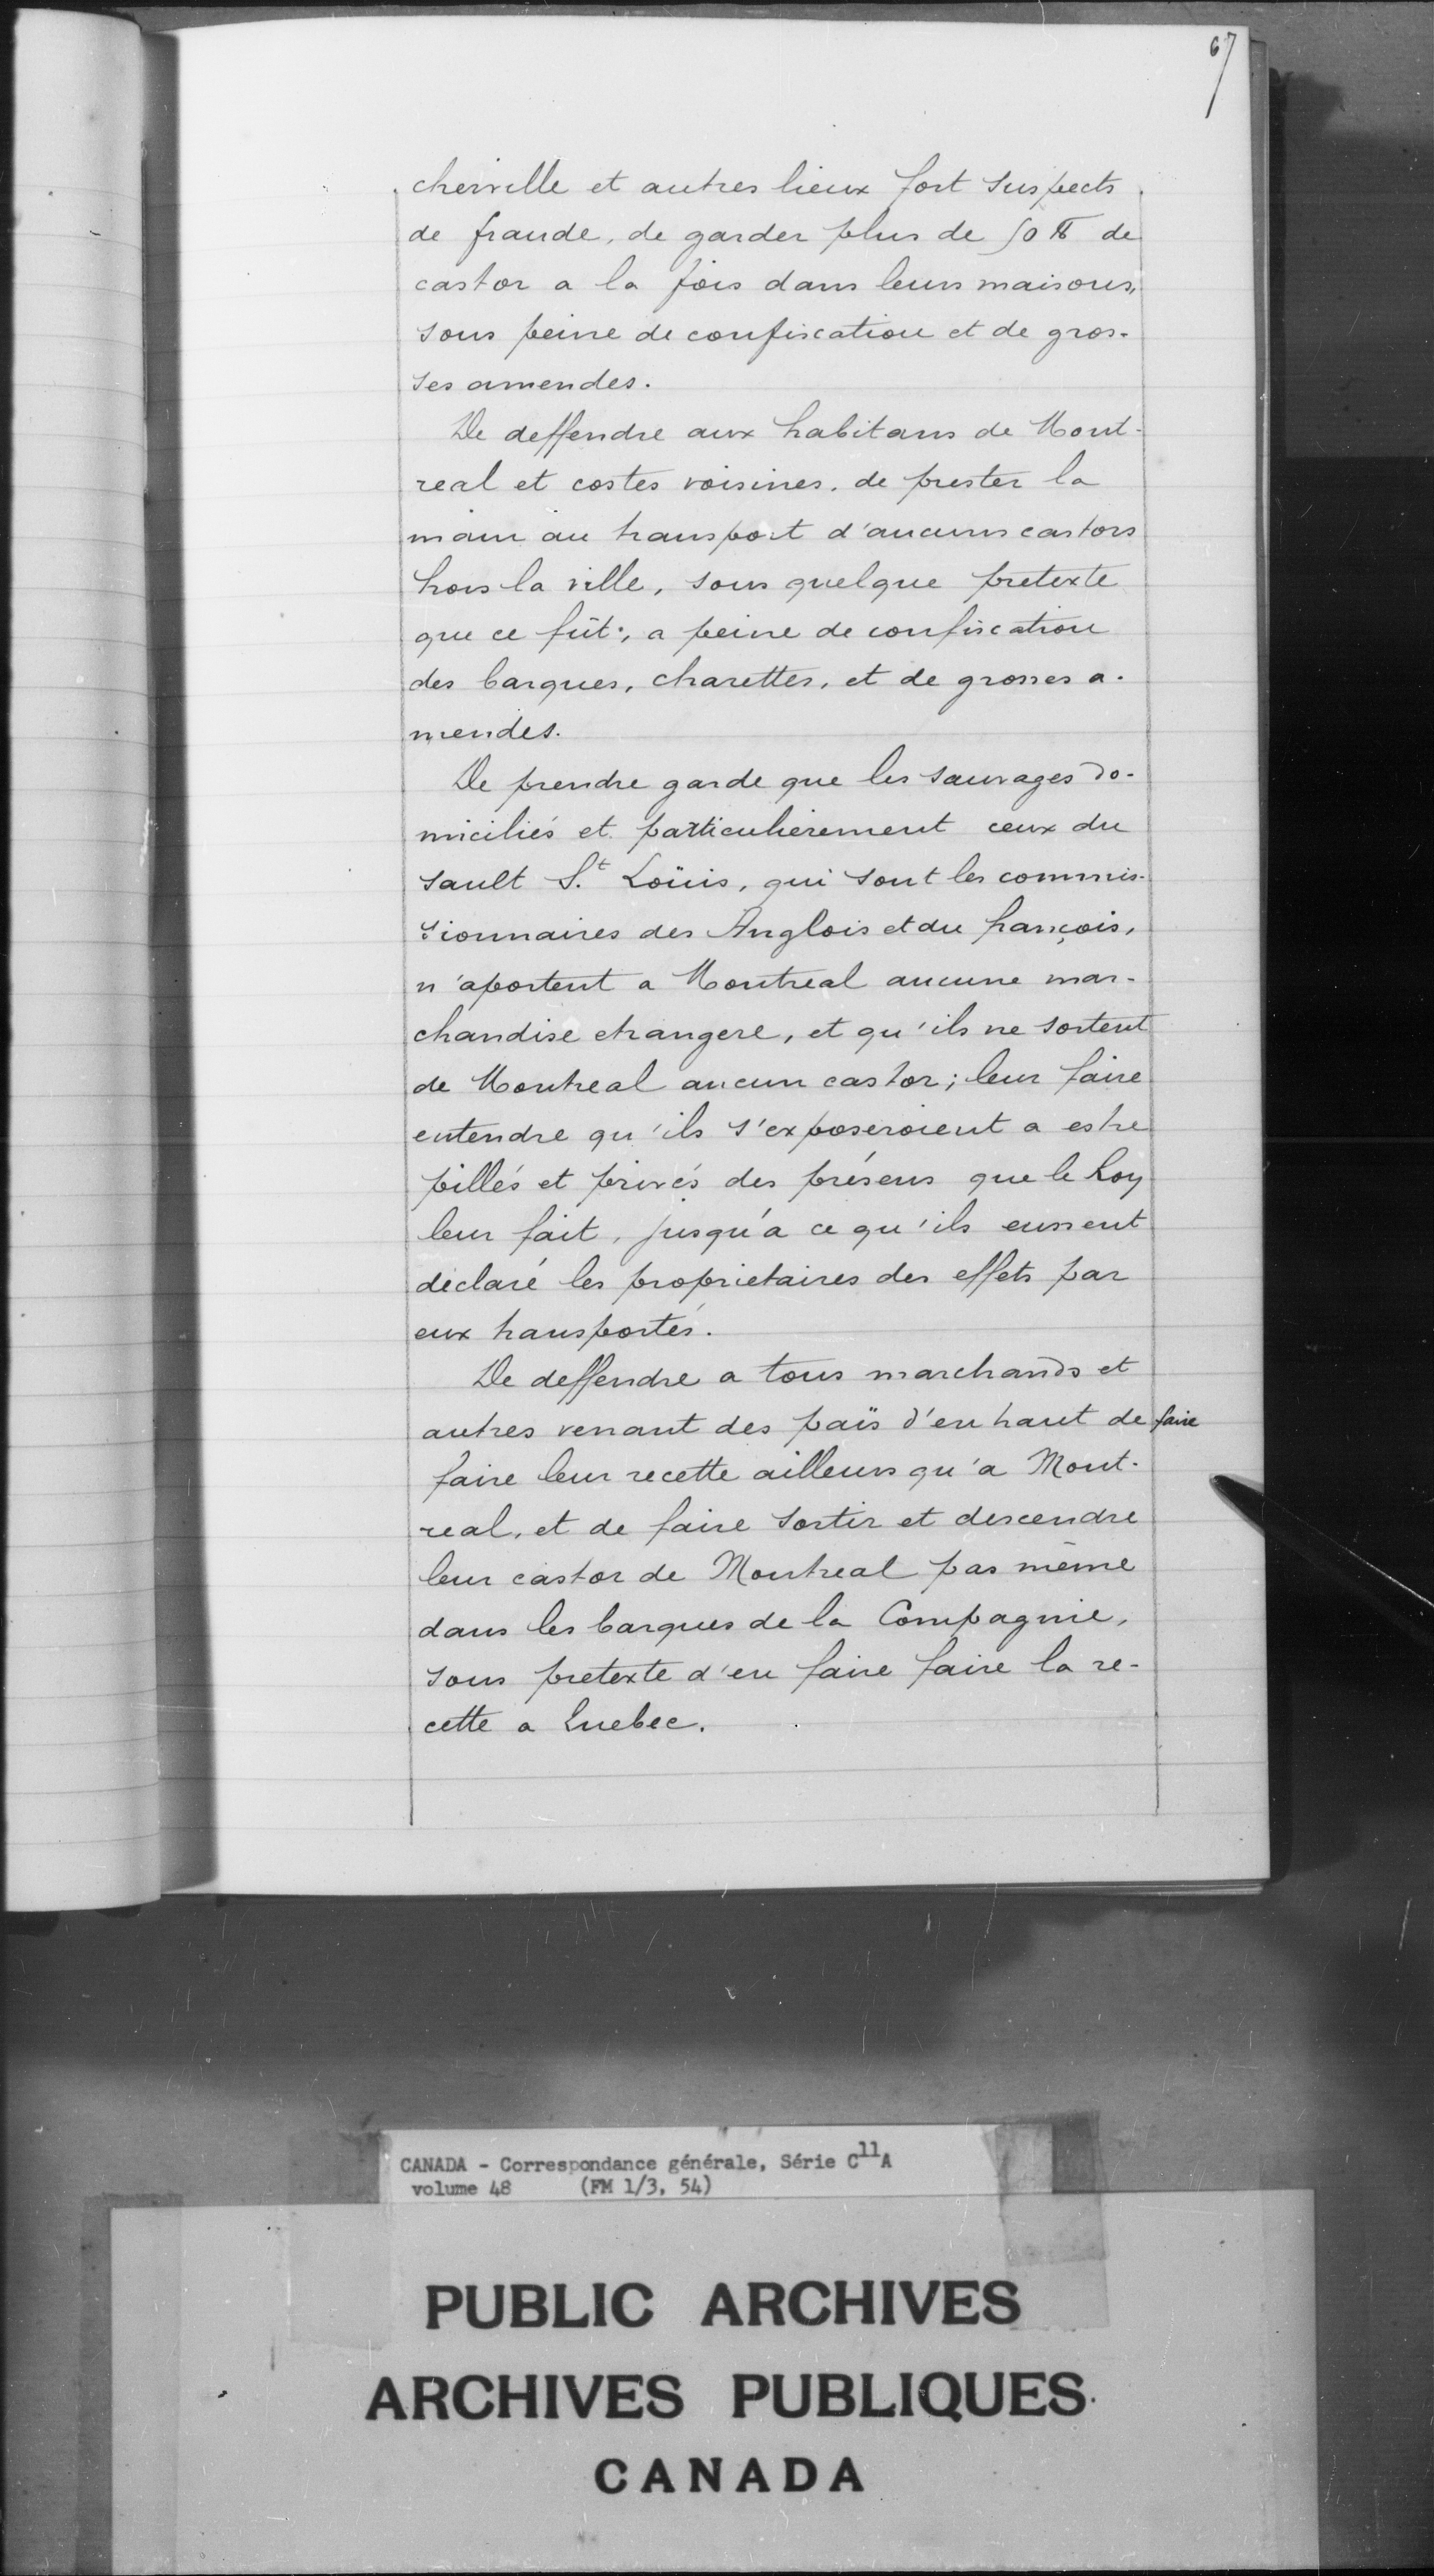 67
cherville et autres lieux fort suspects
de fraude, de garder plus de 50 ₶ de
castor a la fois dans leurs maisons,
sous peine de confiscation et de gros-
ses amendes.
De deffendre aux habitans de Mont-
real et costes voisines, de prester la
main au transport d'aucuns castors
hors la ville, sous quelque pretexte
que ce fût, a peine de confiscation
des barques, charettes, et de grosses a-
mendes.
De prendre garde que les sauvages do-
miciliés et particulierement ceux du
sault S.t Loüis, qui sont les commis-
sionnaires des Anglois et du françois,
n'aportent a Montreal aucune mar-
chandise etrangere, et qu'ils ne sortent
de Montreal aucun castor; leur faire
entendre qu'ils s'exposeroient a estre
pillés et privés des présens que le Roy
leur fait, jusqu'a ce qu'ils eussent
declaré les proprietaires des effets par
eux transportés.
De deffendre a tous marchands et
autres venant des païs d'en haut de faire
faire leur recette ailleurs qu'a Mont-
real, et de faire sortir et descendre
leur castor de Montreal pas même
dans les barques de la Compagnie,
sous pretexte d'en faire faire la re-
cette a Quebec.
CANADA - Correspondance générale, Série C11A
volume 48 (FM 1/3, 54)
PUBLIC ARCHIVES
ARCHIVES PUBLIQUES
CANADA